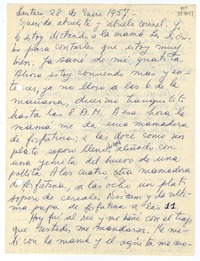 Santiago 28 de Enero 1957 -
Querida abuelita y abuelo coronel. Yo
le estoy dictando a la mamá la
para contarles que estoy muy
bien. Ya sané de mi
Ahora estoy comiendo mas y co-
mo ya no lloro a las 6 de la
mañana, duermo tranquilito
hasta las 8 A.M. A esa hora la
mamá me da una mamadera
de fosfatina; a las doce como un
plato sopero lleno aliñado con
una yemita del huevo de una
pollita. A las cuatro otra mamadera
de fosfatina, a las ocho un plati
sopero de cereales Nestum y de ulti-
ma papa de fosfatina a las 11.
Hoy fui al río y me bañé con el traje
que ustedes me mandaron. Me me-
tí con la mamá y el aguita me